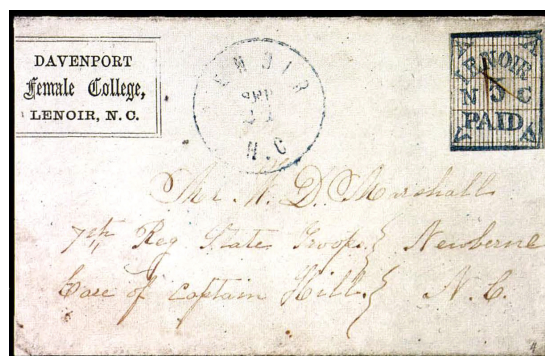 DAVENPORT
Female College,
LENOIR, N. C.
LENOIR
SEP
N.C
LENOIR
N 5 C
PAID
Mr. W. D. Marshall
7th Reg State Troops } Newberne
Care of Captain Hill } N. C.